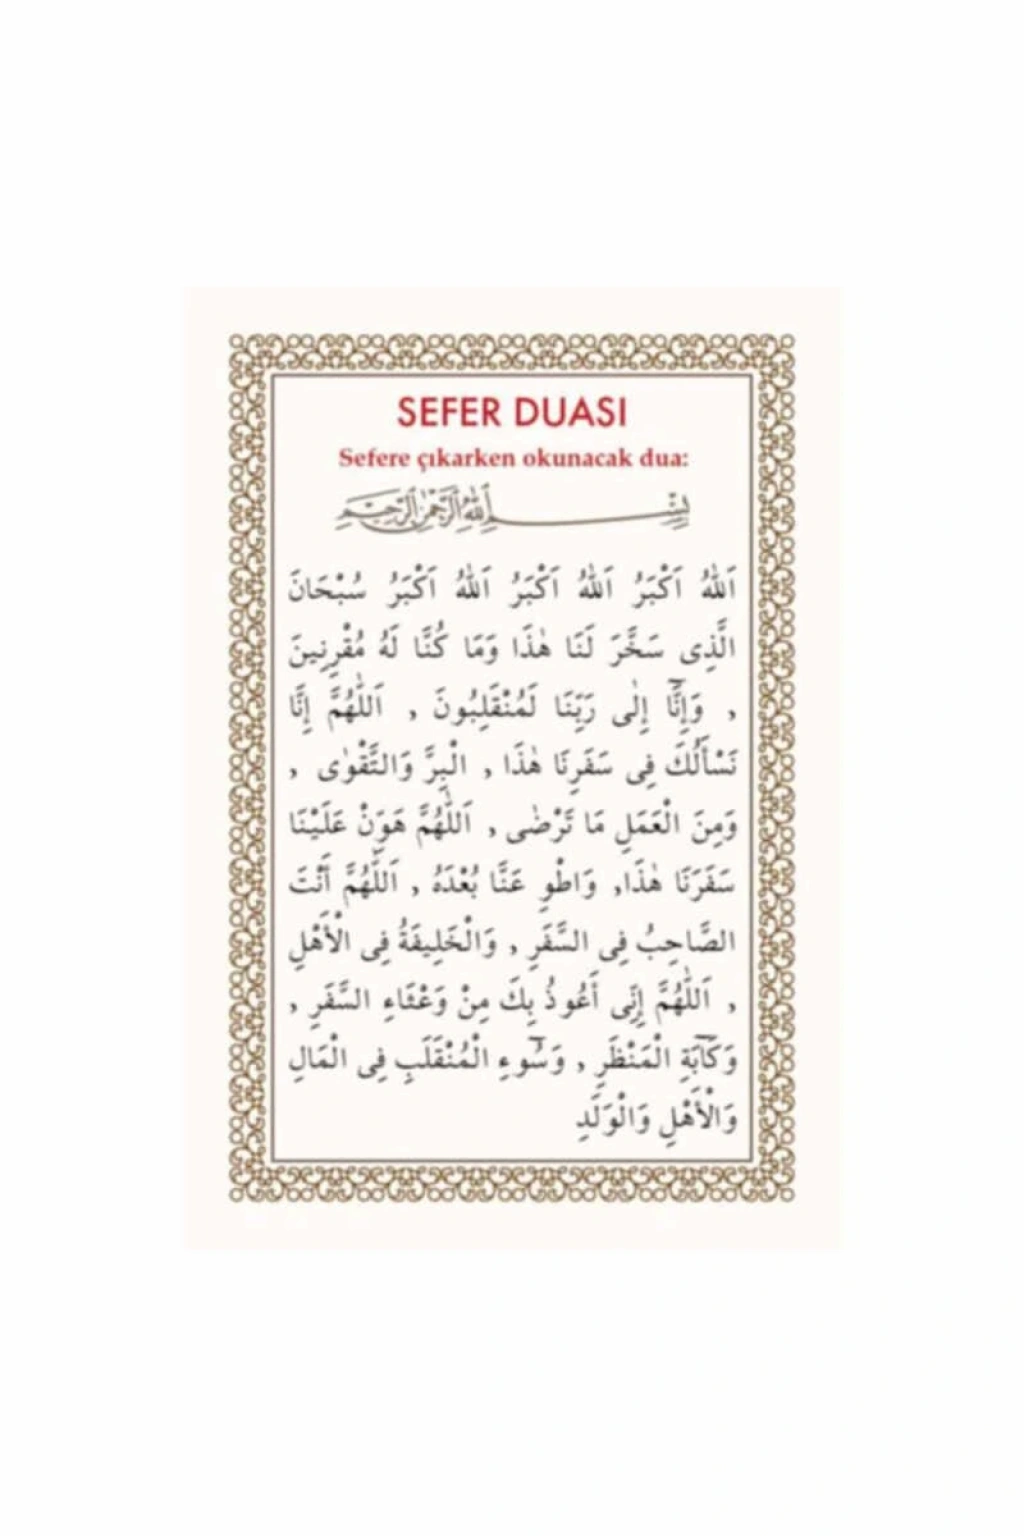 SEFER DUASI
Sefere çıkarken okunacak dua:
بِسْمِ اللّٰهِ الرَّحْمٰنِ الرَّحِيمِ
اَللّٰهُ اَكْبَرُ اَللّٰهُ اَكْبَرُ اَللّٰهُ اَكْبَرُ سُبْحَانَ
الَّذِى سَخَّرَ لَنَا هٰذَا وَمَا كُنَّا لَهُ مُقْرِنِينَ
, وَإِنَّٓا إِلٰى رَبِّنَا لَمُنْقَلِبُونَ , اَللّٰهُمَّ إِنَّا
نَسْأَلُكَ فِى سَفَرِنَا هٰذَا , الْبِرَّ وَالتَّقْوٰى ,
وَمِنَ الْعَمَلِ مَا تَرْضٰى , اَللّٰهُمَّ هَوِّنْ عَلَيْنَا
سَفَرَنَا هٰذَا, وَاطْوِ عَنَّا بُعْدَهُ , اَللّٰهُمَّ أَنْتَ
الصَّاحِبُ فِى السَّفَرِ , وَالْخَلِيفَةُ فِى الْأَهْلِ
, اَللّٰهُمَّ إِنِّى أَعُوذُ بِكَ مِنْ وَعْثَاءِ السَّفَرِ ,
وَكَآبَةِ الْمَنْظَرِ , وَسُٓوءِ الْمُنْقَلَبِ فِى الْمَالِ
وَالْأَهْلِ وَالْوَلَدِ